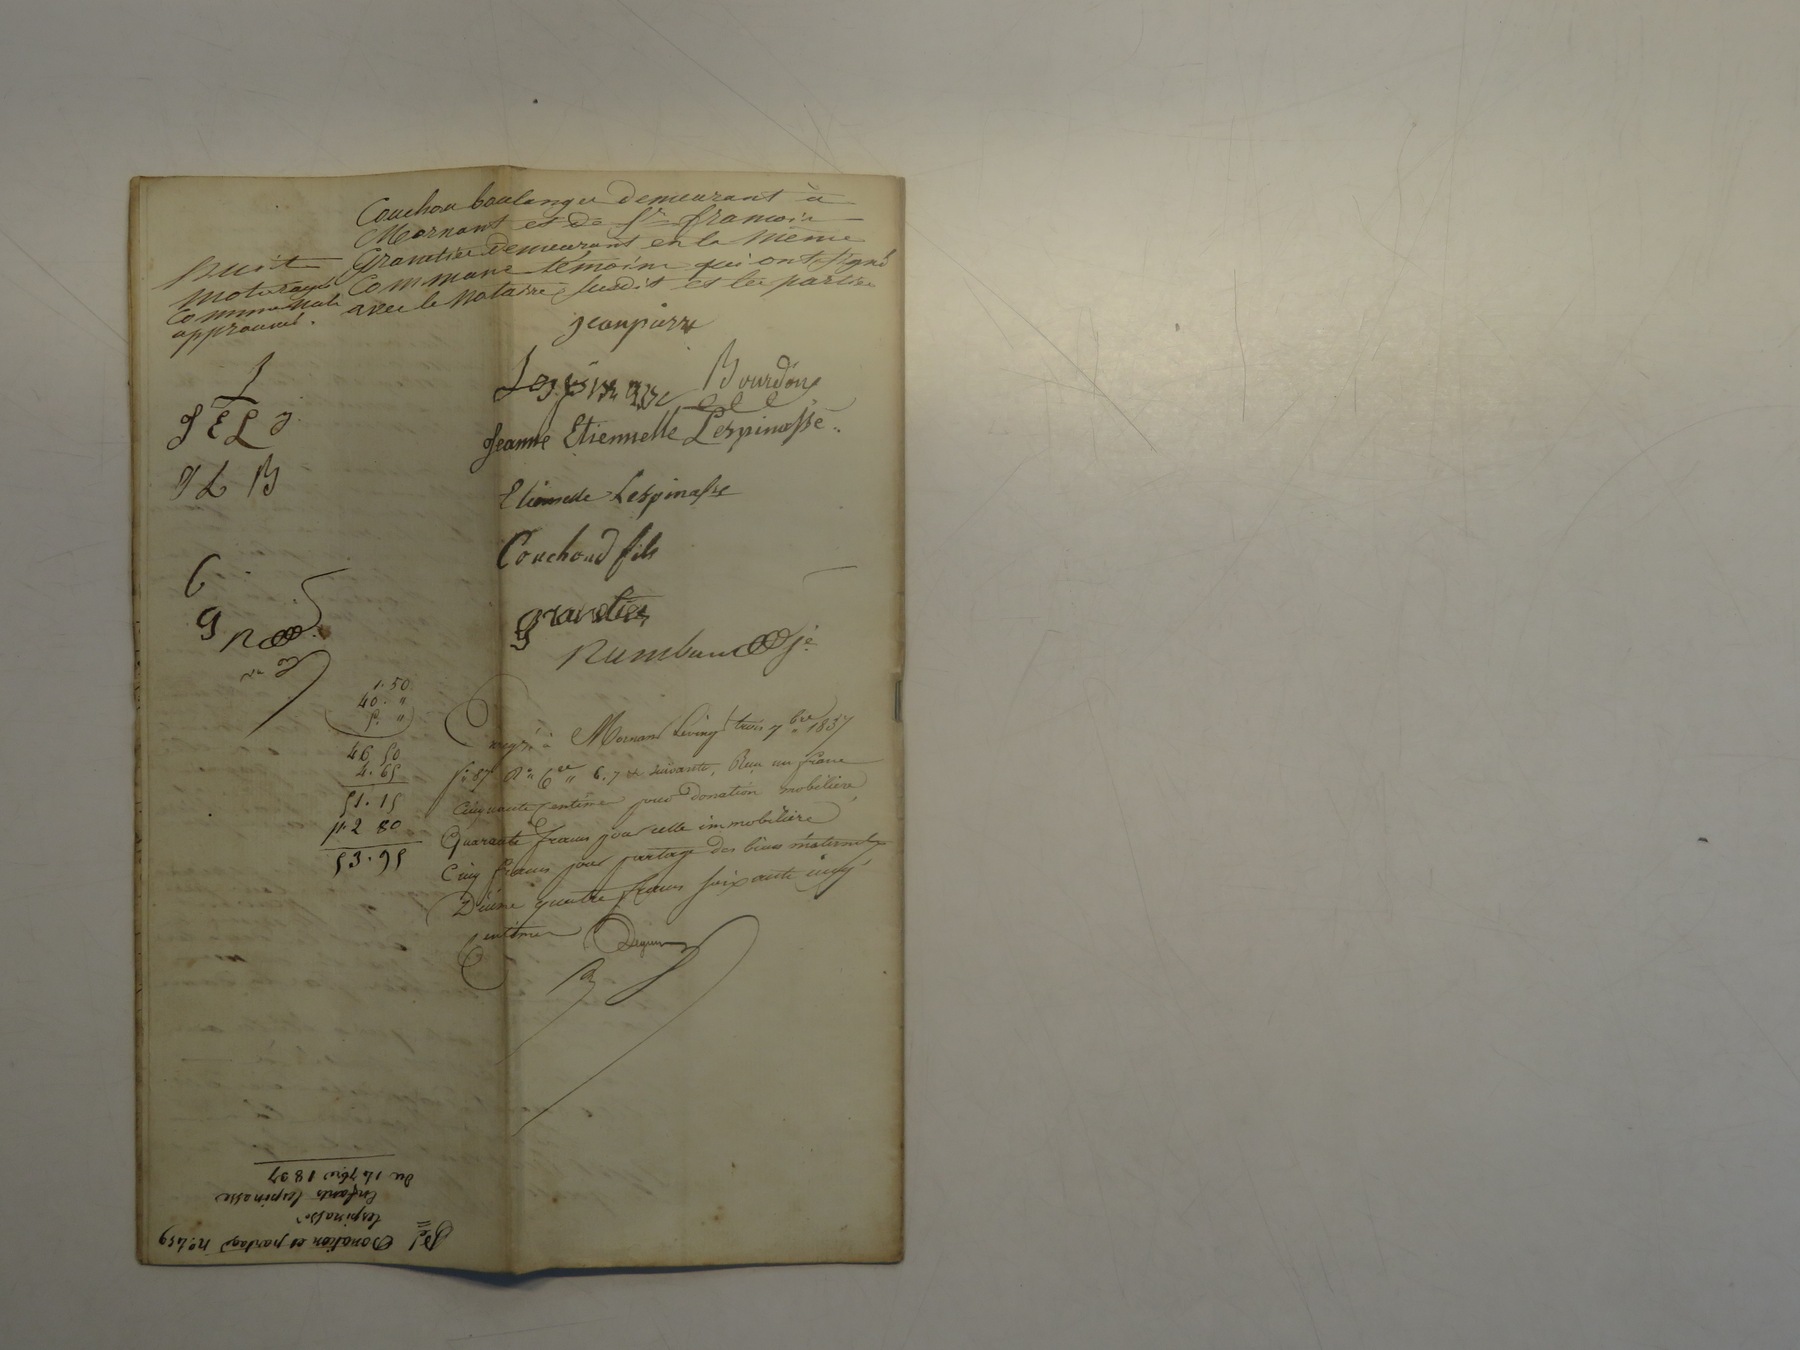 Couchou boulanger demeurant à
Mornant et de Sr. françois
Grandier demeurant en la même
Commune témoins qui ont signé
avec le notaire susdit et les parties
huit
mots rayés
comme nuls
approuvés.
jeanpierre
Lespinasse Bourdon
Jeanne Etiennette Lespinasse
Etiennette Lespinasse
Couchoud fils
grandier
J
J E L J
J L B
C
g
1. 50
40. "
5. "
46 50
4. 65
51. 15
2 80
53. 95
Enregré à Mornant le vingt trois 7bre 1837
fo 87 Ro Cse 6. 7 et suivantes, Reçu un franc
cinquante centimes pour Donation mobilière
Quarante francs pour celle immobilière
Cinq francs pour partage des biens maternels
Dixme quatre francs soixante cinq
centimes
Donation et partage no. 459
Lespinasse
enfants Lespinasse
du 14 7bre 1837